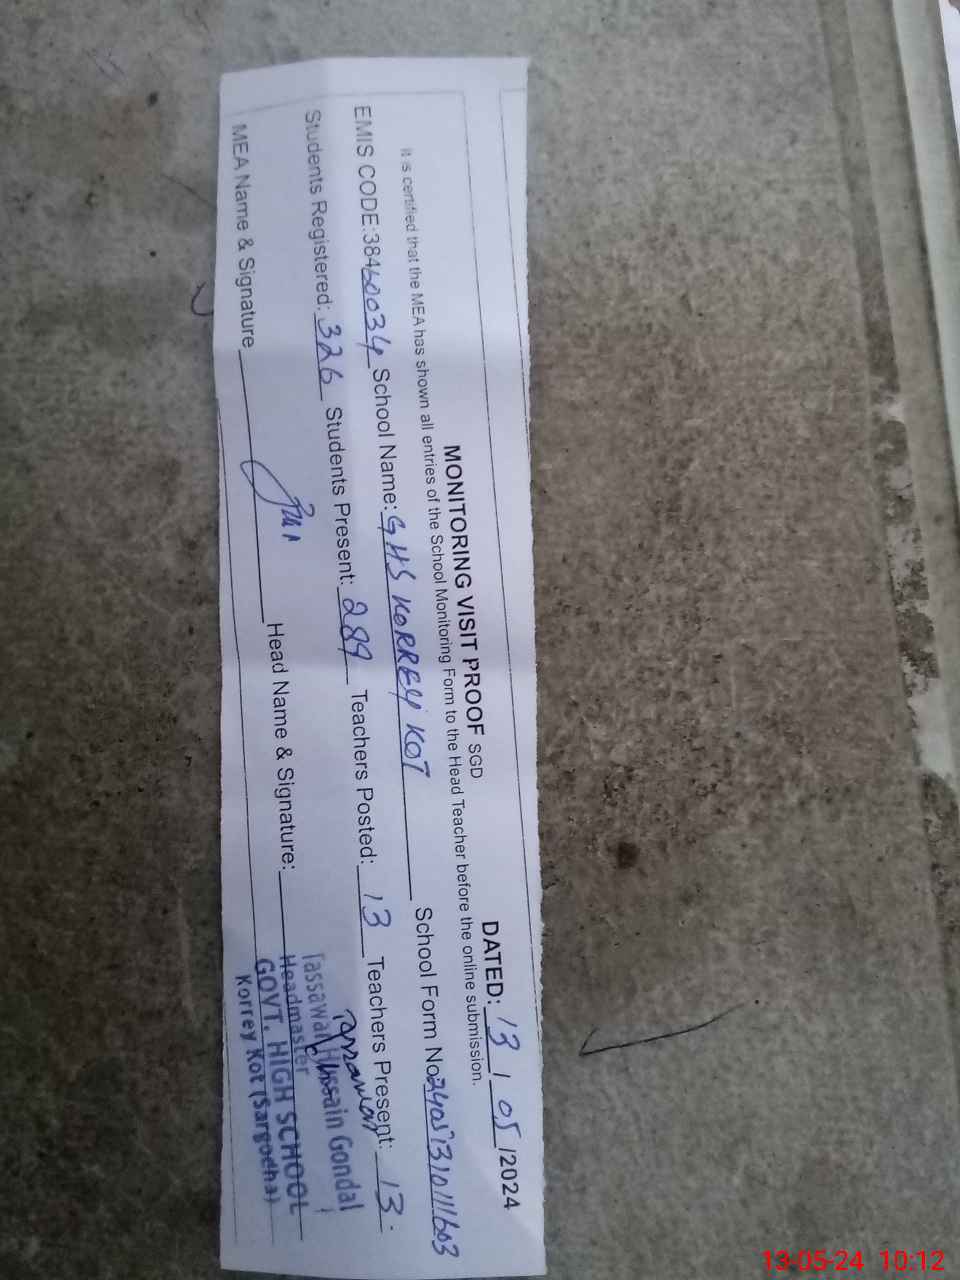 MONITORING VISIT PROOF SGD DATED: 13/05/2024
It is certified that the MEA has shown all entries of the School Monitoring Form to the Head Teacher before the online submission.
EMIS CODE:38460034 School Name: GHS KORREY KOT School Form No 24051310111603
Students Registered: 326 Students Present: 289 Teachers Posted: 13 Teachers Present: 13.
MEA Name & Signature Head Name & Signature:
Tassawar Hussain Gondal
Headmaster
GOVT. HIGH SCHOOL
Korrey Kot (Sargodha)
13-05-24 10:12